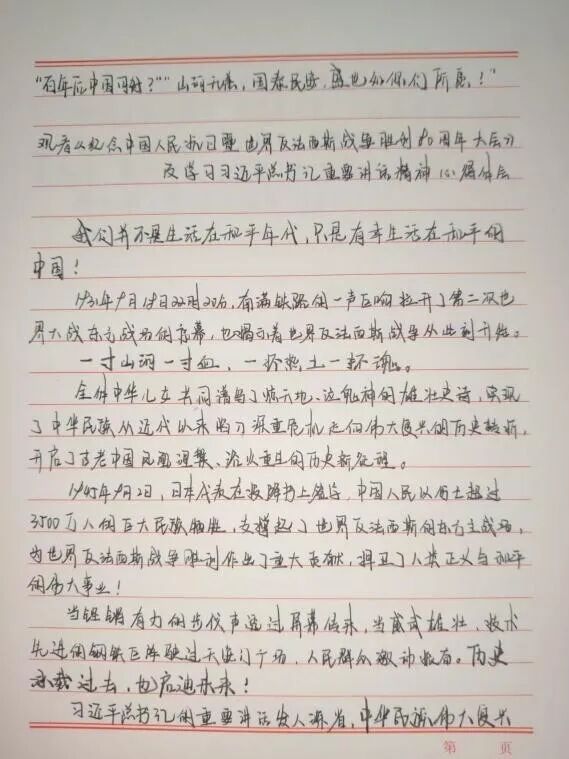 “百年后中国何时？”“山河无恙，国泰民安，盛世如你们所愿！”
观看纪念中国人民抗日暨世界反法西斯战争胜利80周年大会
及学习习近平总书记重要讲话精神心得体会
我们并不是生活在和平年代，只是有幸生活在和平的
中国！
1931年9月18日22时20分，南满铁路的一声巨响拉开了第二次世
界大战东方战场的序幕，也揭示着世界反法西斯战争从此刻开始。
一寸山河一寸血，一抔热土一抔魂。
全体中华儿女共同谱写了惊天地、泣鬼神的雄壮史诗，实现
了中华民族从近代以来陷入深重危机走向伟大复兴的历史转折，
开启了古老中国凤凰涅槃、浴火重生的历史新征程。
1945年9月2日，日本代表在投降书上签字，中国人民以伤亡超过
3500万人的巨大民族牺牲，支撑起了世界反法西斯的东方主战场，
为世界反法西斯战争胜利作出了重大贡献，捍卫了人类正义与和平
的伟大事业！
当铿锵有力的步伐声透过屏幕传来，当威武雄壮、技术
先进的钢铁巨阵驶过天安门广场，人民群众激动振奋。历史
承载过去，也启迪未来！
习近平总书记的重要讲话发人深省，中华民族伟大复兴
第 页